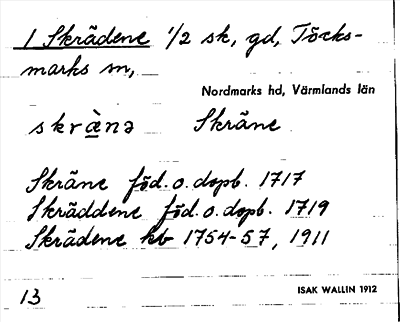 1 Skrädene 1/2 sk, gd, Töcks-
marks sn,
Nordmarks hd, Värmlands län
skrὲnə Skräne
Skräne föd. o. dopb. 1717
Skräddene föd. o. dopb. 1719
Skrädene kb 1754-57, 1911
13
ISAK WALLIN 1912